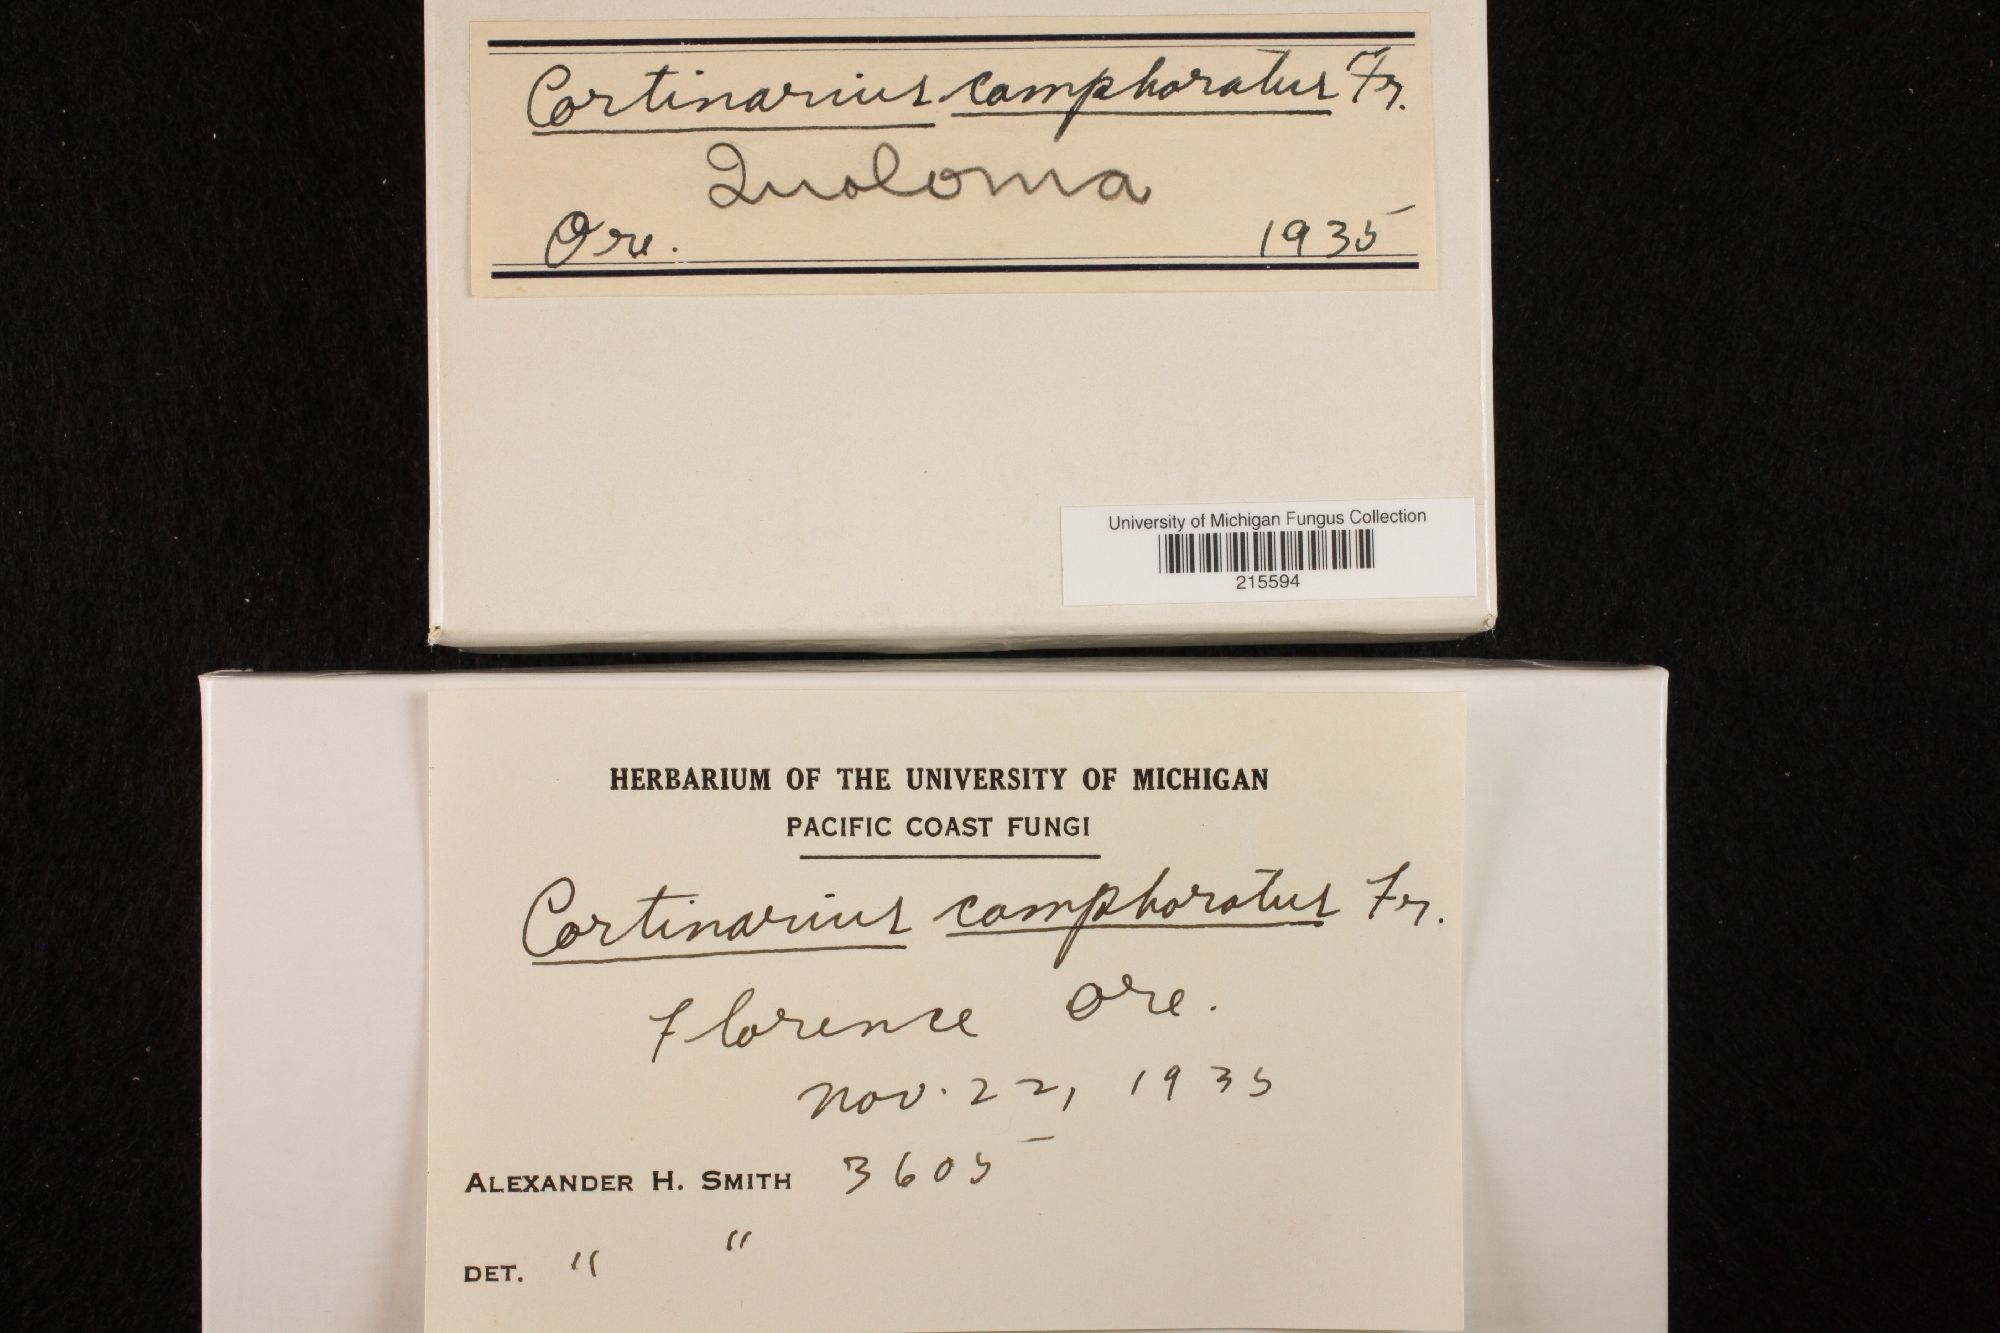 Cortinarius camphoratus Fr.
Inoloma
Ore. 1935
University of Michigan Fungus Collection
215594
HERBARIUM OF THE UNIVERSITY OF MICHIGAN
PACIFIC COAST FUNGI
Cortinarius camphoratus Fr.
Florence Ore.
Nov. 22, 1935
ALEXANDER H. SMITH 3605
DET. " "